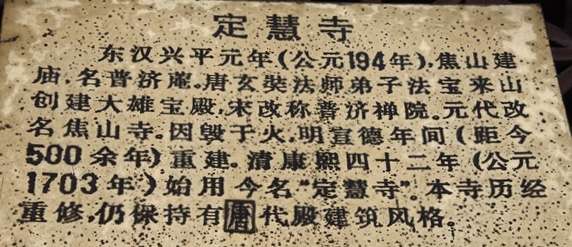 定慧寺
东汉兴平元年(公元194年),焦山建
庙,名普济庵。唐玄奘法师弟子法宝来山
创建大雄宝殿,宋改称普济禅院。元代改
名焦山寺。因毁于火,明宣德年间(距今
500余年)重建。清康熙四十二年(公元
1703年)始用今名“定慧寺”。本寺历经
重修,仍保持有唐代殿建筑风格。